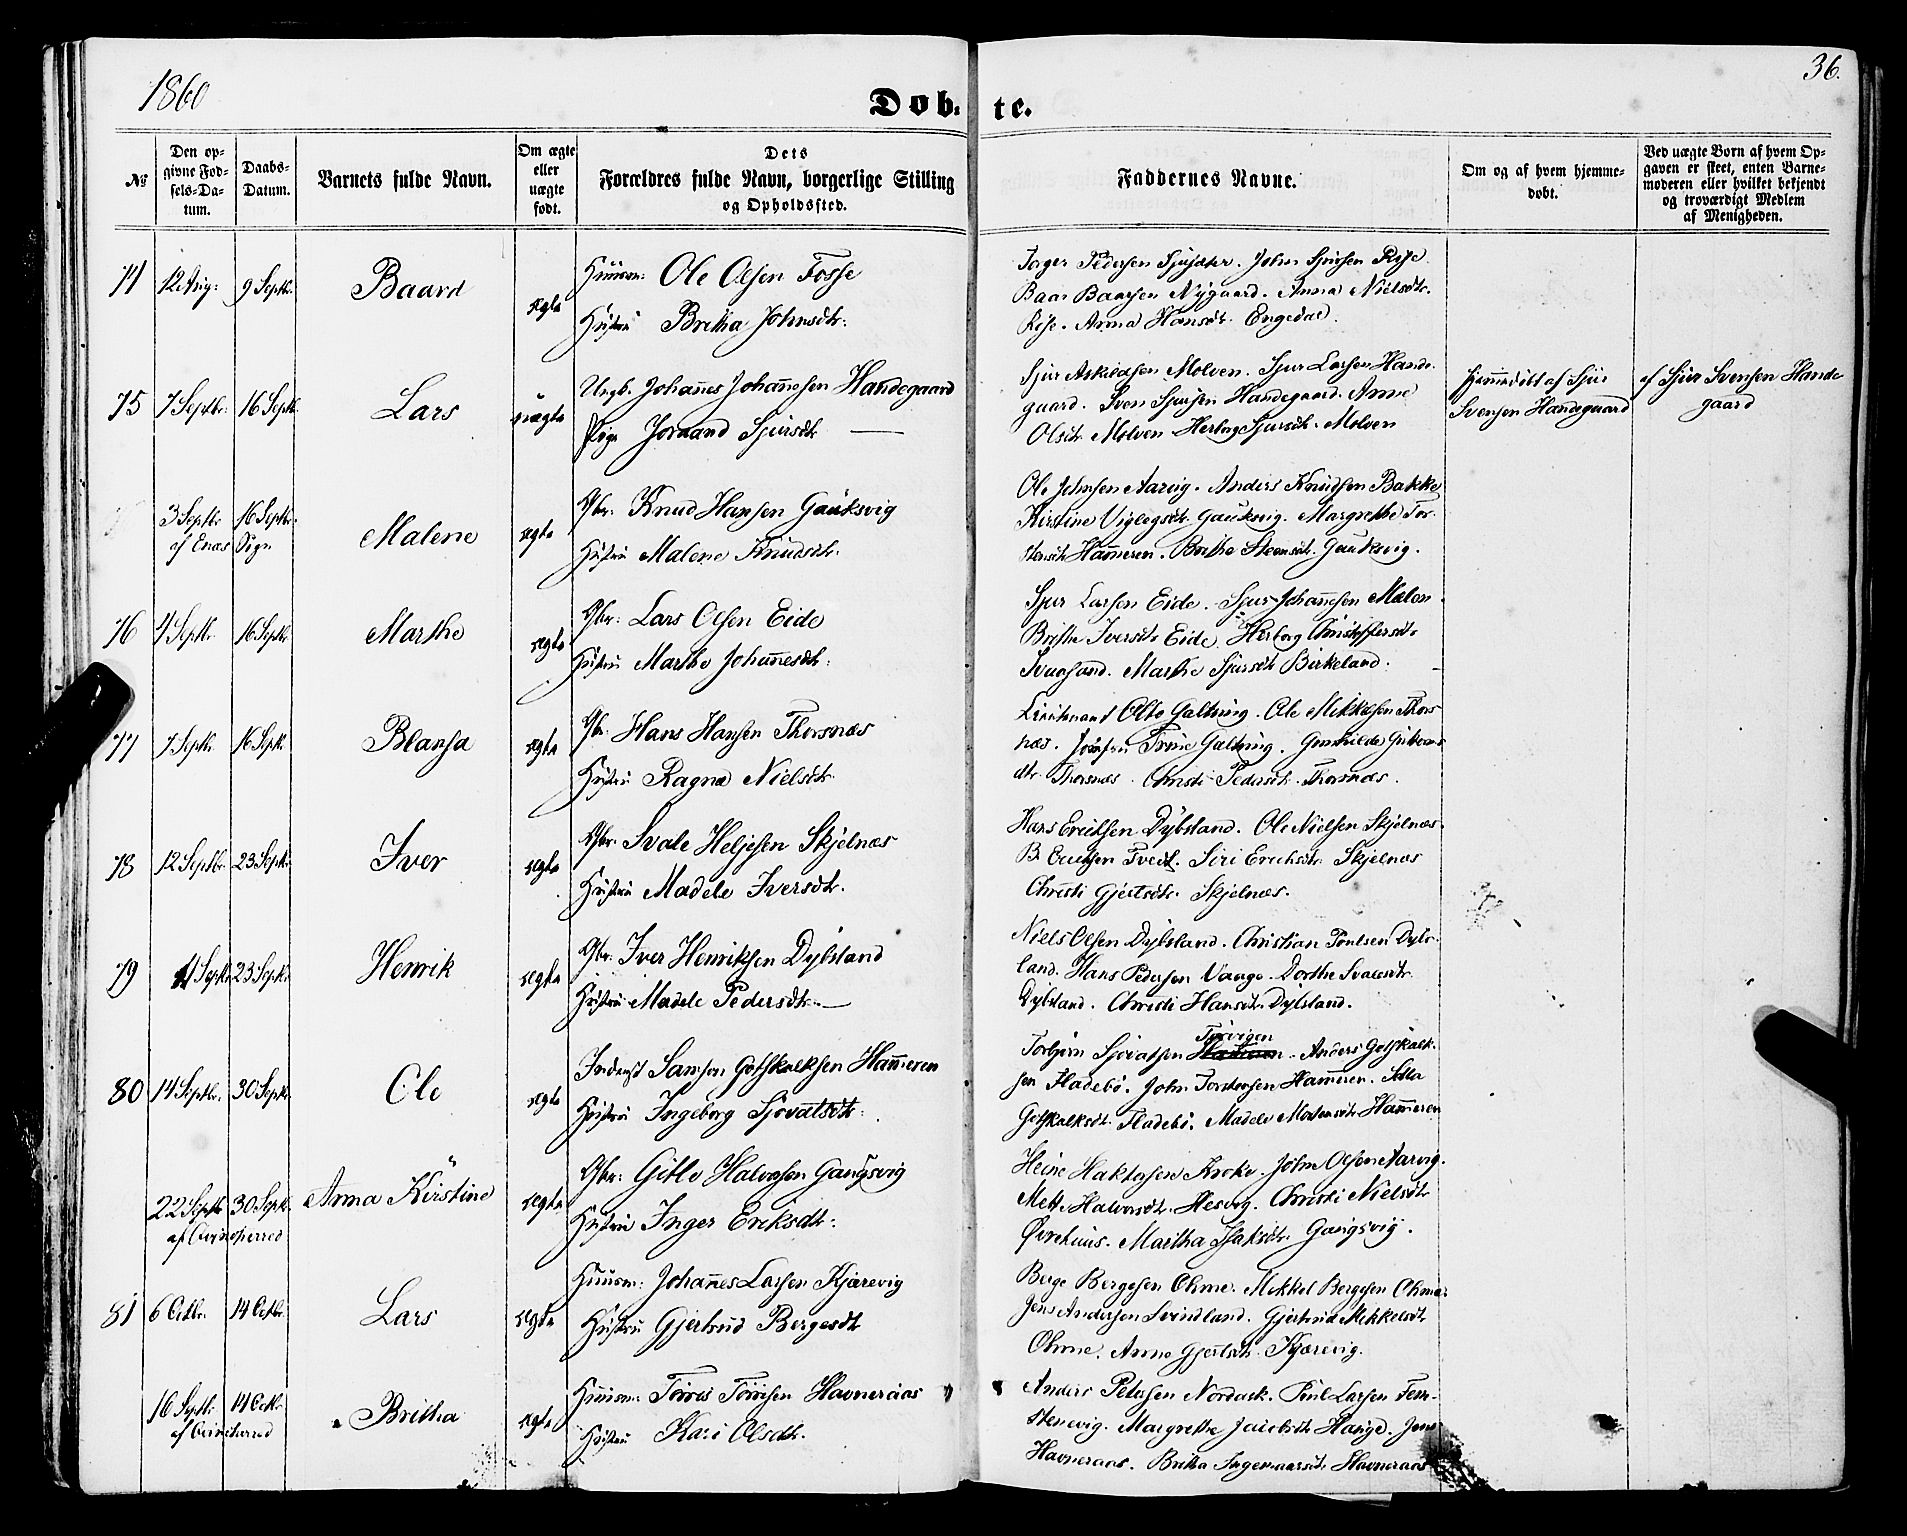 1860
36.
Døb-
te.
No
Den op-
givne Fød-
sels-Da-
tum.
Daabs-
Datum.
Barnets fulde Navn.
Om ægte
eller
uægte
født.
Dets
Forældres fulde Navn, borgerlige Stilling
og Opholdssted.
Faddernes Navne.
Om og af hvem hjemme-
døbt.
Ved uægte Børn af hvem Op-
gaven er skeet, enten Barne-
moderen eller hvilket bekjendt
og troværdigt Medlem
af Menigheden.
74 12 Aug: 9 Septbr. Baard ægte
Huusm: Ole Olsen Fosse
Hustru Britha Johnsdtr:
Torger Pedersen Sjusæter. John Sjursen Rise.
Baar Baarsen Nygaard. Anna Nielsdtr.
Rise. Anna Hansdtr. Engedal.
75 7 Septbr: 16 Septbr. Lars uægte
Ungk. Johannes Johannesen Handegaard
Pige Joraand Sjursdtr —
Sjur Askildsen Molven. Sjur Larsen Hande-
gaard. Sven Sjursen Handegaard. Anne
Olsdtr. Molven Herborg Sjursdtr. Molven
Hjemmedøbt af Sjur
Svensen Handegaard
af Sjur Svensen Hande
gaard
3 Septbr 16 Septbr. Malene ægte
af Enæs Sogn
Gbr: Knud Hansen Gauksvig
Hustru Malene Knudsdtr.
Ole Johnsen Aarvig. Anders Knudsen Bakke
Kirstine Viglegsdtr. Gauksvig. Margrethe Tor-
stensdtr Hammeren. Brithe Steensdtr. Gauksvig.
76 4 Septbr. 16 Septbr Marthe ægte
Gbr: Lars Olsen Eide
Hustru Marthe Johannesdtr:
Sjur Larsen Eide. Sjur Johannesen Mælen.
Brithe Iversdtr Eide. Herborg Christoffersdtr
Svarsand. Marthe Sjursdtr Birkeland.
77 7 Septbr 16 Septbr. Blansa ægte
Gbr. Hans Hansen Thorsnæs
Hustru Ragna Nielsdtr.
Lieutenant Otto Galtung. Ole Mikkelsen Thors
næs. Jomfru Trine Galtung. Gunhilde
dtr. Thorsnæs. Christi Pedersdtr. Thorsnæs.
78 12 Septbr. 23 Septbr. Iver ægte
Gbr. Svale Heljesen Skjelnæs
Hustru Madele Iversdtr.
Hans Ericksen Dybsland. Ole Nielsen Skjelnæs.
Tvedt. Siri Erichsdtr. Skjelnæs
Christi Gjertsdtr. Skjelnæs.
79 11 Septbr 23 Septbr. Henrik ægte
Gbr. Iver Henriksen Dybsland
Hustru Madele Pedersdtr. —
Niels Olsen Dybsland. Christian Poulsen Dybs-
land. Hans Pedersen Vaage. Dorthe Svalesdtr.
Dybsland. Christi Hansdtr. Dybsland.
80 14 Septbr. 30 Septbr. Ole ægte
Inderst Samson Gotskalksen Hammeren
Hustru Ingeborg Sjovatsdtr:
Torbjørn Sjovatsen Torvigen. Anders Gotskalk-
sen Fladebø. John Torstensen Hammeren.
Gotskalksdtr. Fladebø. Madele Mortensdtr. Hammeren
22 Septbr 30 Septbr. Anna Kirstine ægte
af Qvindherred
Gbr: Gitle Halvorsen Gangsvig
Hustru Inger Eriksdtr:
Heine Haktorsen Kroke. John Olsen Aarvig.
Mette Halvorsdtr. Hesvig. Christi Nielsdtr
Øvrehuus. Martha Isaksdtr. Gangsvig.
81 6 Octbr. 14 Octbr. Lars ægte
Huusm: Johannes Larsen Kjærevig
Hustru Gjertrud Bergesdtr
Berge Bergesen Ohme. Mikkel Bergesen Ohme.
Jens Andersen Svindland. Gjertrud Mikkelsdtr
Ohme. Anne Gjertsdtr. Kjærevig.
16 Septbr 14 Octbr. Britha ægte
af Qvindherred
Huusm: Torres Torresen Havneraas
Hustru Kari Olsdtr.
Anders Petersen Nordask. Poul Larsen Fem-
stenevig. Margrethe Jacobsdtr Hauge. Jens
Havneraas. Britha Ingemaarsdtr Havneraas